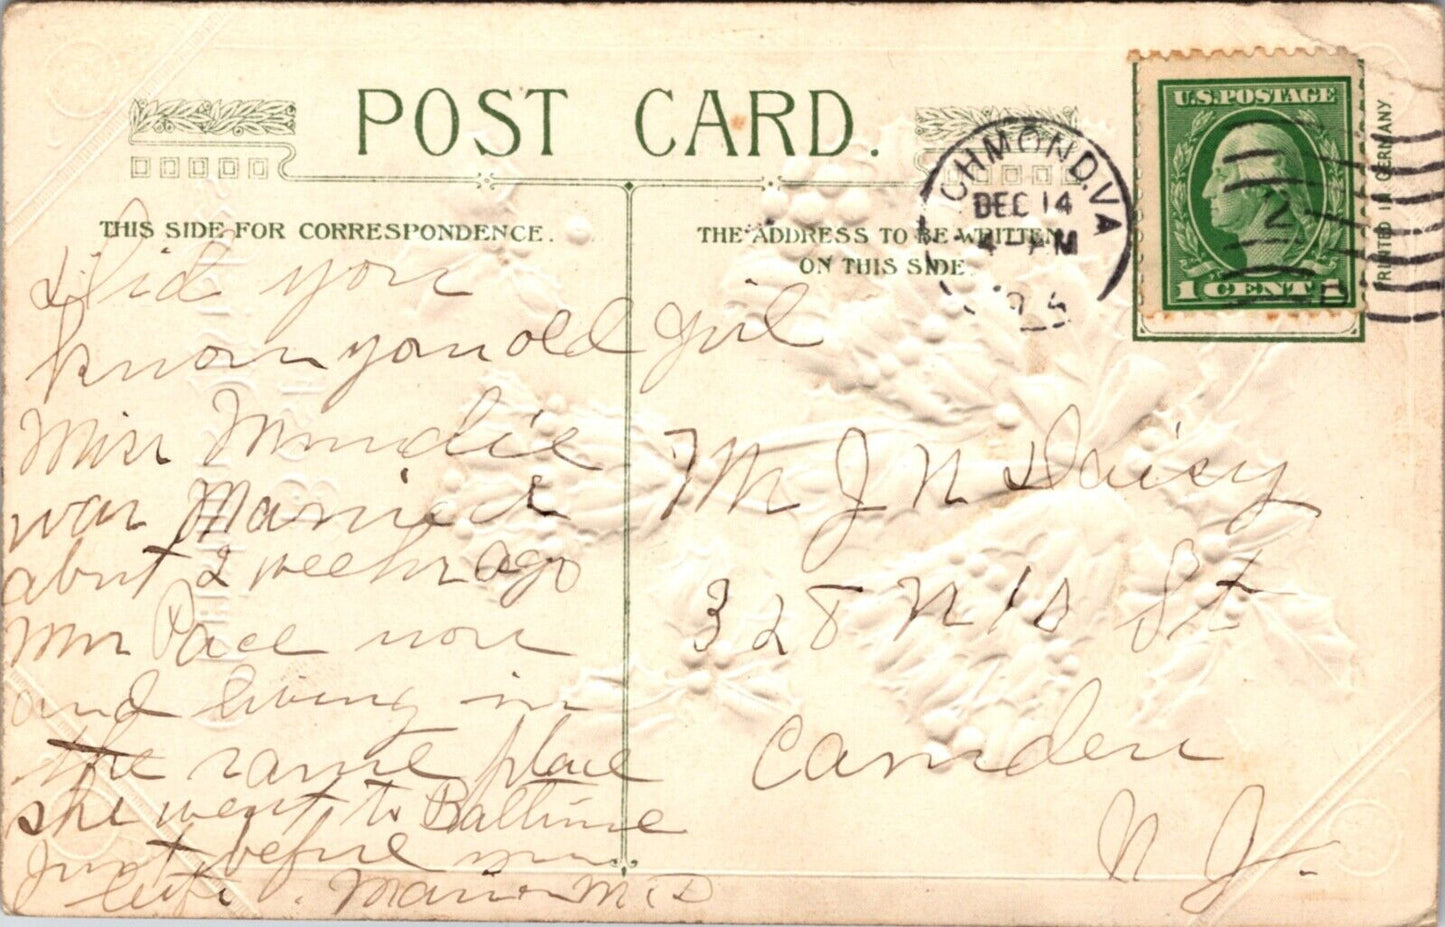 POST CARD.
THIS SIDE FOR CORRESPONDENCE.
THE ADDRESS TO BE WRITTEN
ON THIS SIDE
CHMOND, VA
DEC 14
4 - PM
U.S. POSTAGE
1 CENT 1
2
PRINTED IN GERMANY
Did you
know your old girl
Miss Mundie
was Married
about 2 weeks ago
Mrs Pace now
and living in
the same place
she went to Baltimore
Just before
M. D
Mr J N Daisy
328 N 15 St
Camden
N J.